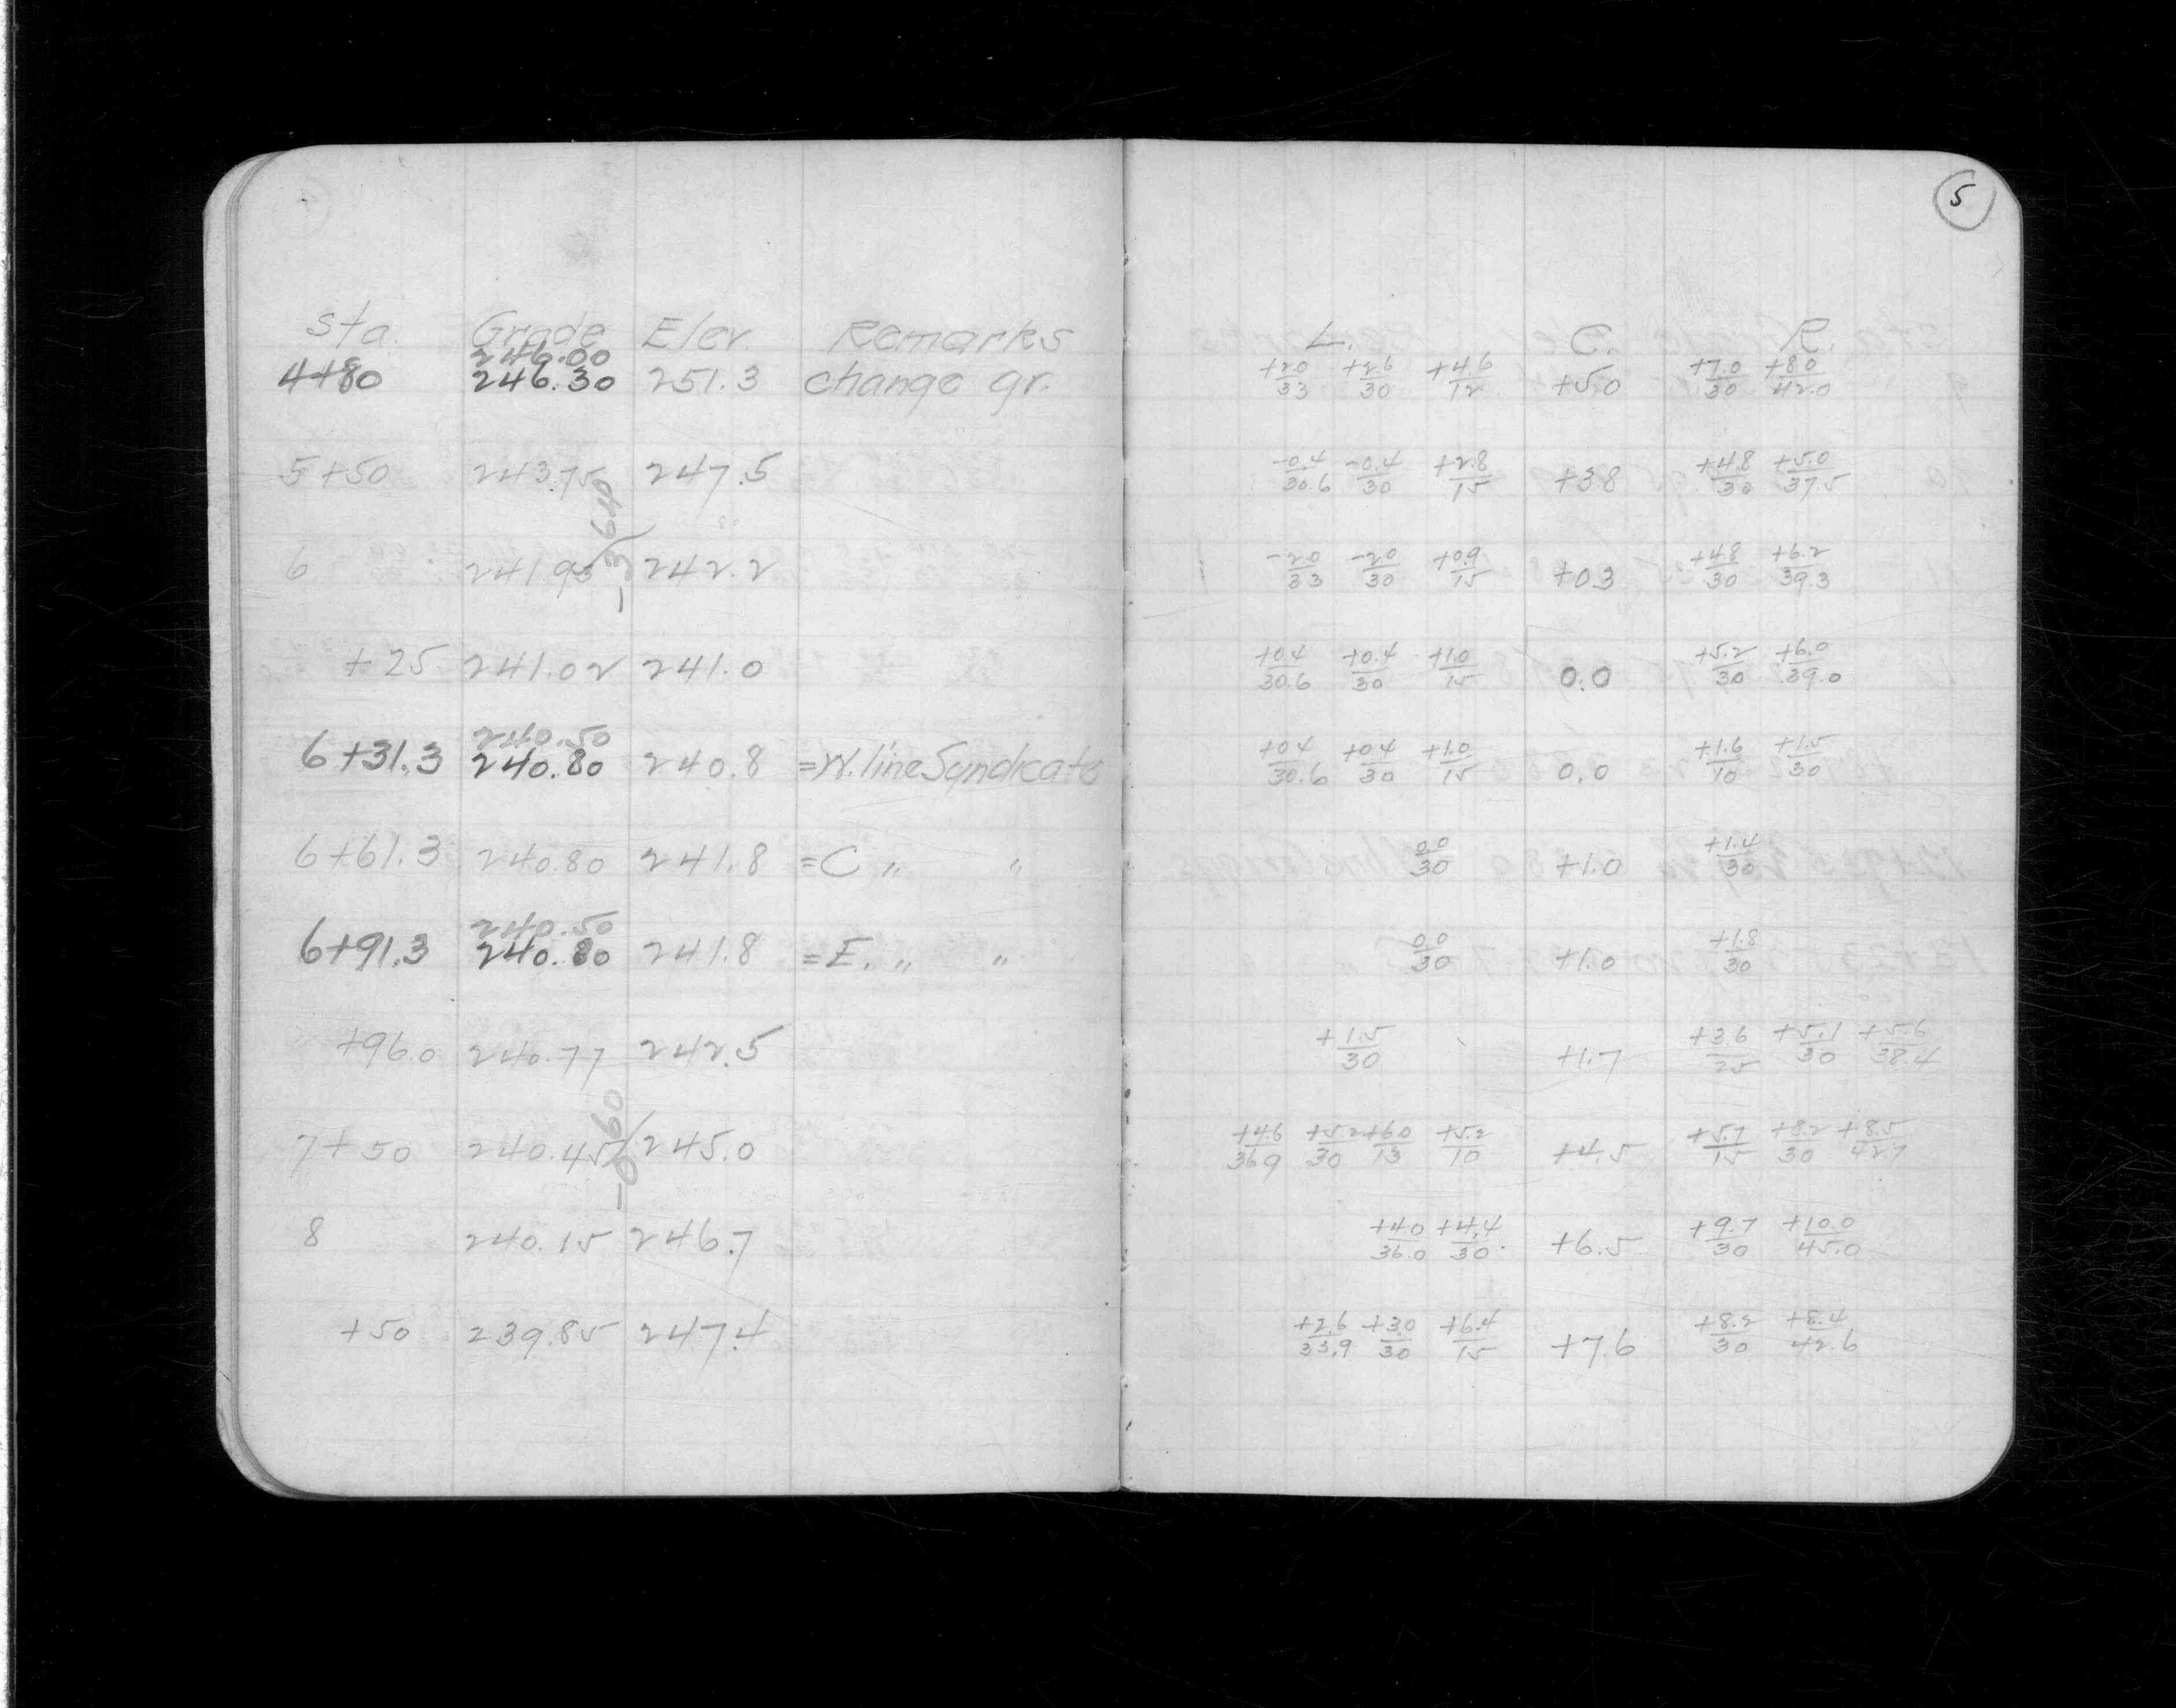 5
Sta. Grade Elev. Remarks L. C. R.
246.00
4+80 246.30 251.3 change gr. +2.0/33 +2.6/30 +4.6/12 +5.0 +7.0/30 +8.0/42.0
5+50 243.75 247.5 -0.4/30.6 -0.4/30 +2.8/15 +3.8 +4.8/30 +5.0/37.5
-3.640
6 241.93 242.2 -2.0/33 -2.0/30 +0.9/15 +0.3 +4.8/30 +6.2/39.3
+25 241.02 241.0 +0.4/30.6 +0.4/30 +1.0/15 0.0 +5.2/30 +6.0/39.0
240.50
6+31.3 240.80 240.8 =W.line Syndicate +0.4/30.6 +0.4/30 +1.0/15 0.0 +1.6/10 +1.5/30
6+61.3 240.80 241.8 =C " " 0.0/30 +1.0 +1.4/30
240.50
6+91.3 240.80 241.8 =E. " " 0.0/30 +1.0 +1.8/30
+96.0 240.77 242.5 +1.5/30 +1.7 +3.6/25 +5.1/30 +5.6/38.4
-0.60
7+50 240.45 245.0 +4.6/36.9 +5.2/30 +6.0/13 +5.2/10 +4.5 +5.7/15 +8.2/30 +8.5/42.7
8 240.15 246.7 +4.0/36.0 +4.4/30 +6.5 +9.7/30 +10.0/45.0
+50 239.85 247.4 +2.6/33.9 +3.0/30 +6.4/15 +7.6 +8.2/30 +8.4/42.6